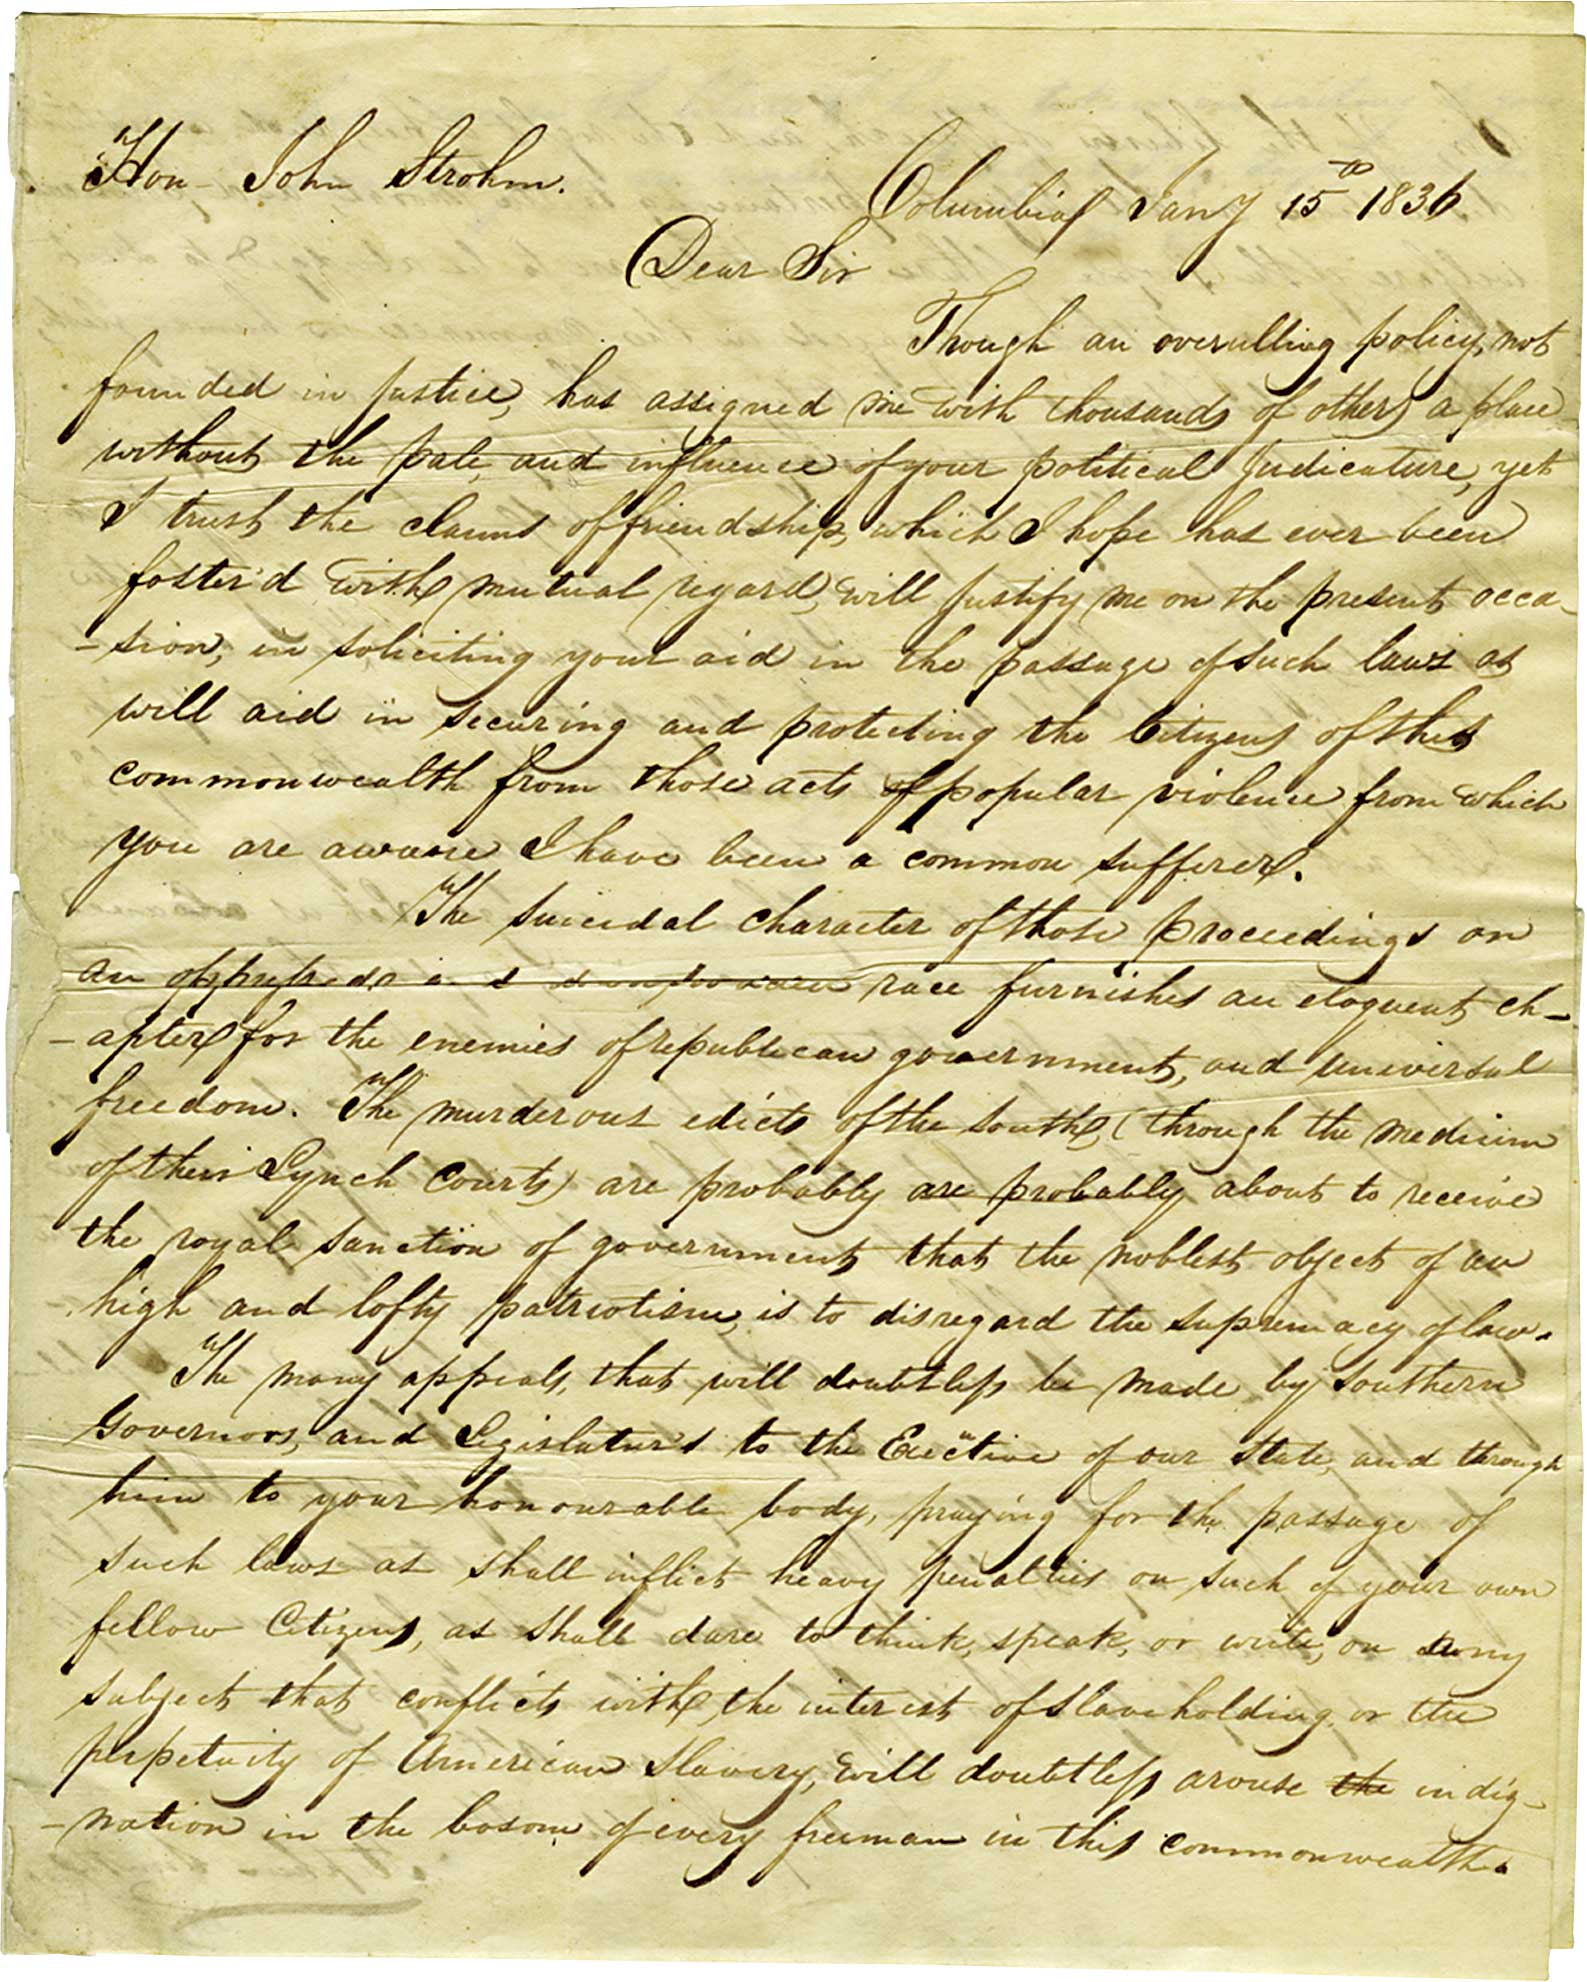 Hon John Strohm.
Columbia Jany 15th 1836
Dear Sir
Though an overulling policy, not
founded in justice, has assigned me with thousands of others a place
without the pale, and influence of your political judicature, yet
I trust the claims of friendship, which I hope has ever been
foster'd with mutual regard, will justify me on the present occa-
-sion, in soliciting your aid in the passage of such laws as
will aid in securing and protecting the Citizens of this
commonwealth from those acts of popular violence from which
you are aware I have been a common sufferer.
The suicidal character of those proceedings on
an oppressed and race furnishes an eloquent ch-
-apter for the enemies of republican government, and universal
freedom. The murderous edicts of the south, (through the medium
of their Lynch Courts) are probably are probably about to receive
the royal sanction of government that the noblest object of an
high and lofty patriotism, is to disregard the supremacy of law.
The many appeals, that will doubtless be made by Southern
Governors, and Legislatur's to the Executive of our State, and through
him to your honourable body, praying for the passage of
such laws as shall inflict heavy penalties on such of your own
fellow Citizens, as shall dare to think, speak, or write, on any
subject that conflicts with the interest of slaveholding or the
perpetuity of American Slavery, will doubtless arouse the indig-
-nation in the bosom of every freeman in this commonwealth.